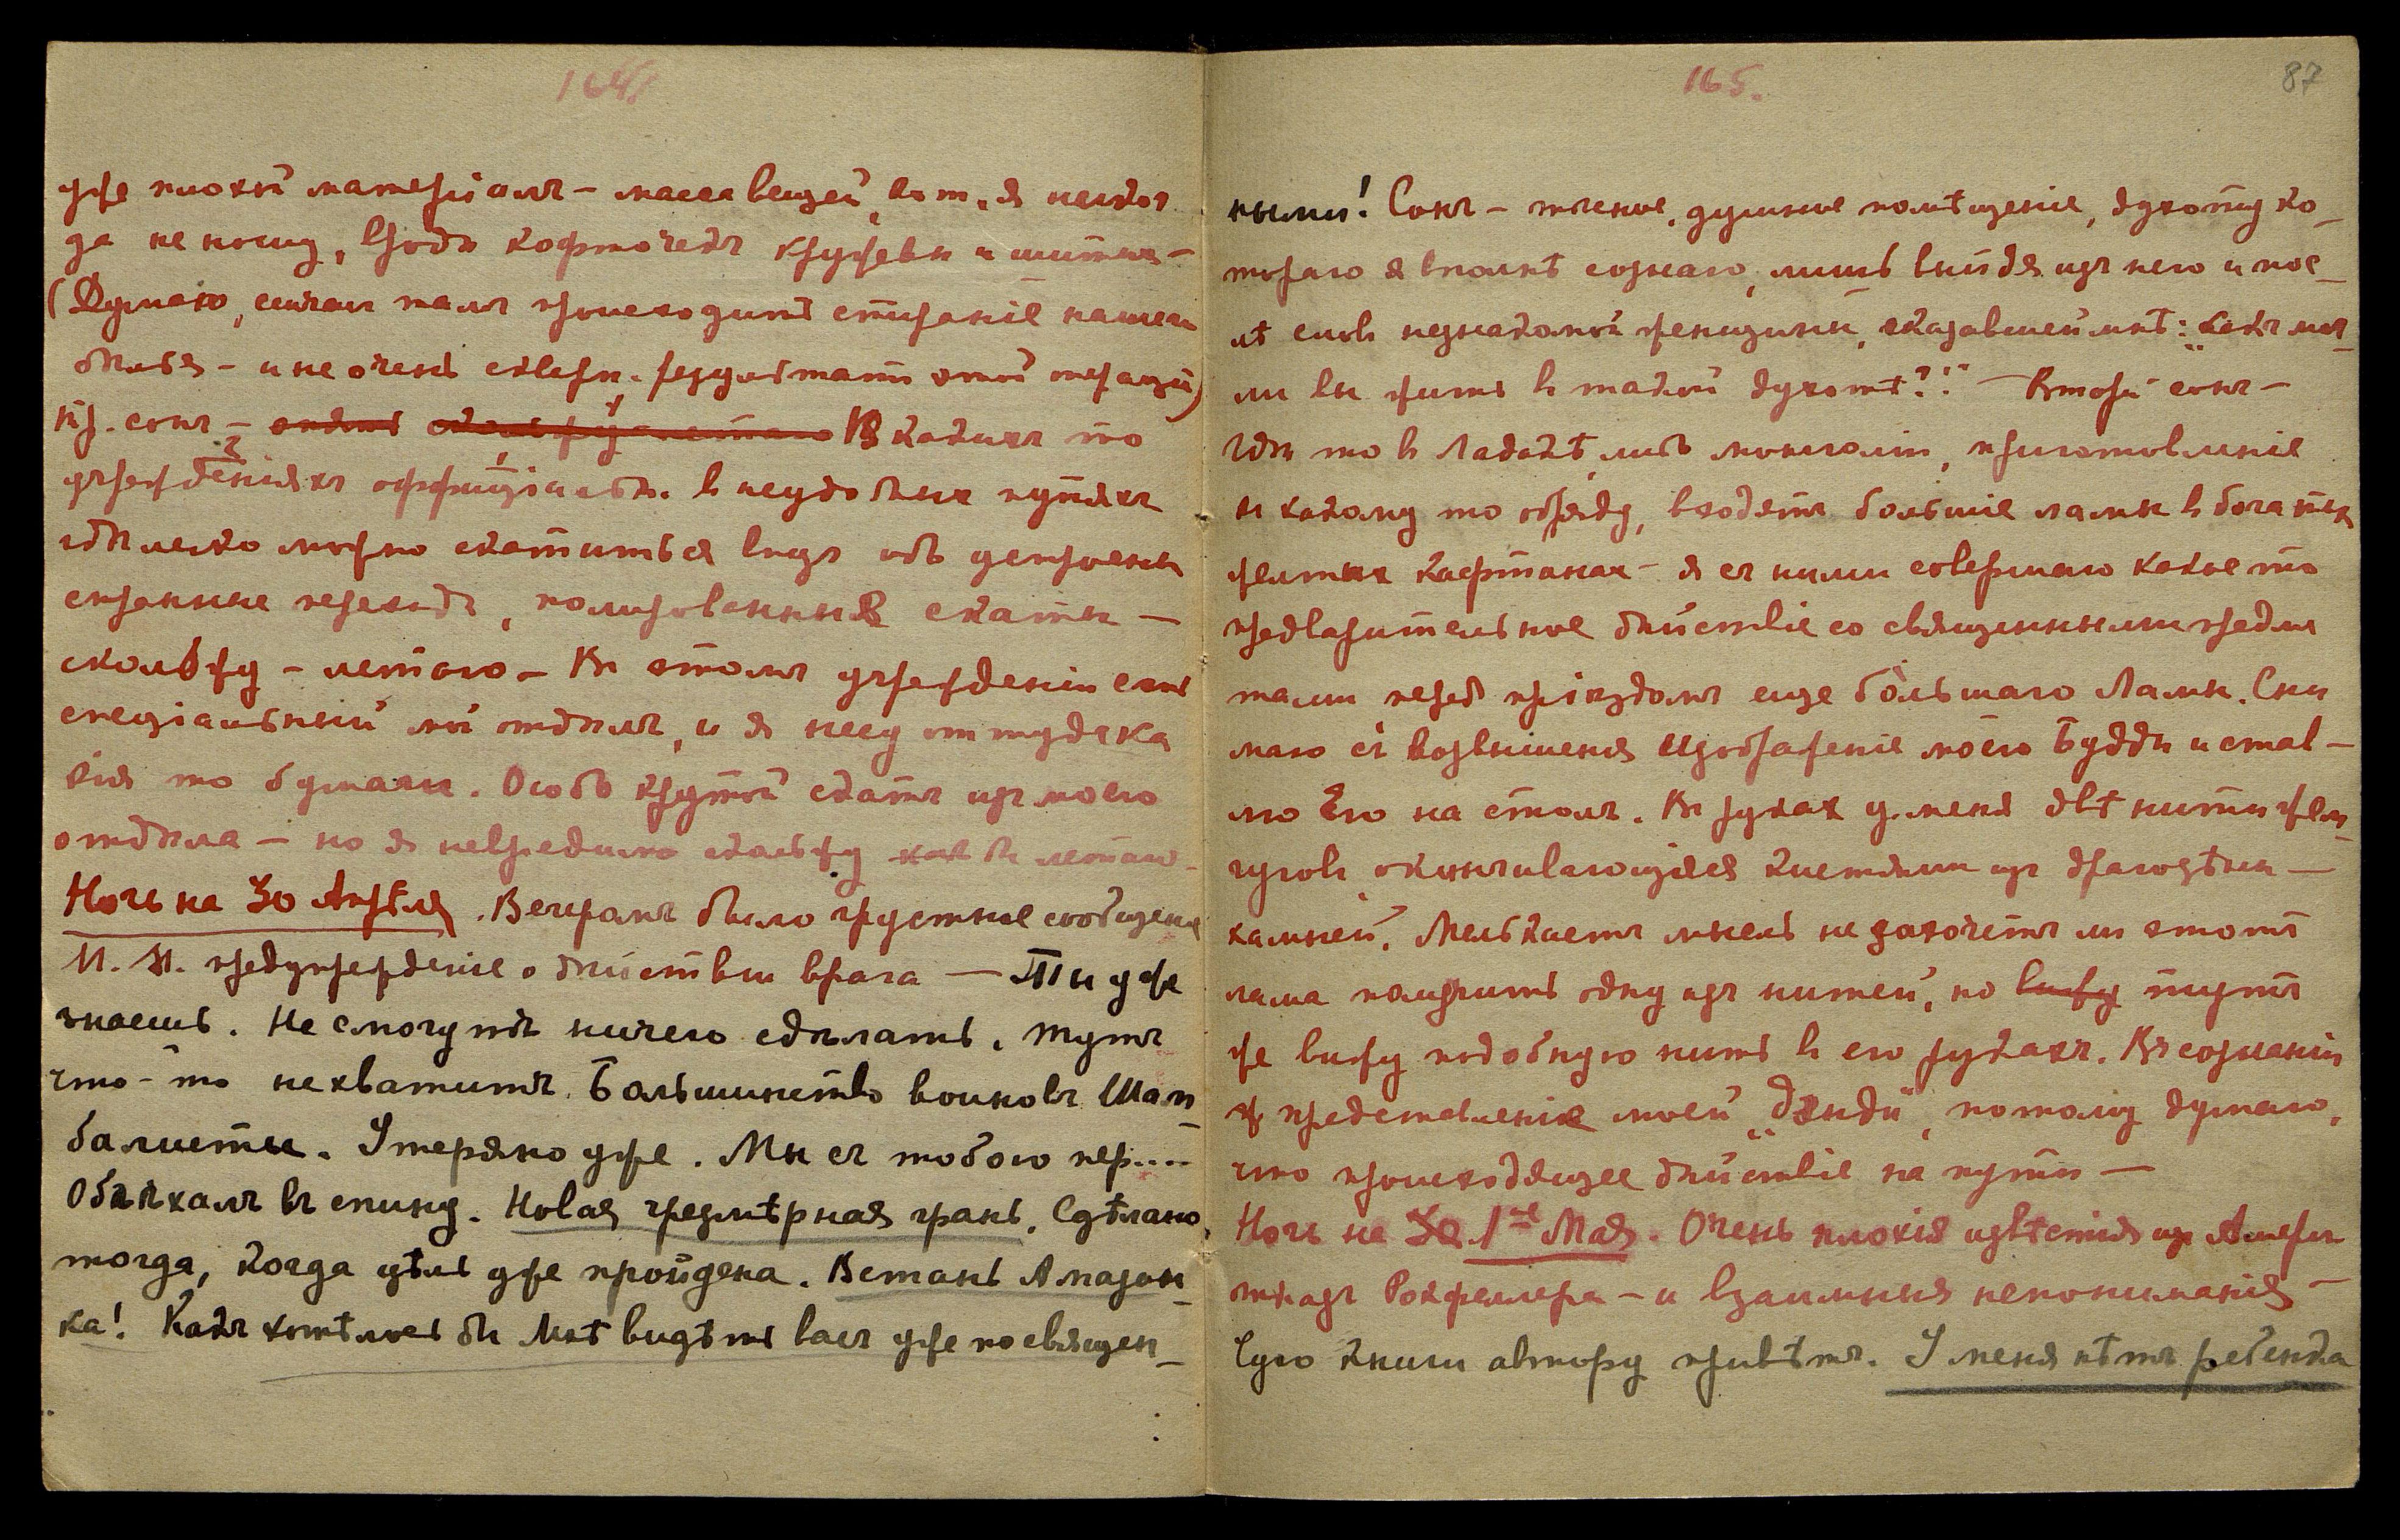 164
уже плохой матеріалъ – масса вещей, кот. я никог
да не ношу, вродѣ кофточекъ кружевн и шитыя –
(Думаю, сейчасъ тамъ происходитъ стиранiе нашего
бѣлья – и не очень скверн. результатъ этой операціи)
Пр. сонъ – Въ какихъ то
учрежденіяхъ оффиціальн. в неудобныхъ путяхъ
гдѣ легко можно скатиться внизъ ибо устроены
странные переходы, полированныя скаты –
скольжу – летаю – Въ этомъ учрежденіи есть
спеціальный мой отдѣлъ, и я несу оттуда ка
кія то бумаги. Особ крутой скатъ изъ моего
отдѣла – но я невредимо скольжу как бы летаю –
Ночь на 30 Апрѣля. Вечеромъ было грустное сообщеніе
М. М. предупрежденіе о дѣйствіи врага — Ты уже
знаешь. Не смогутъ ничего сдѣлать. Тутъ
что-то нехватитъ. Большинство воиновъ Шам
балисты. Утеряно уже. Мы съ тобою пер....
Объѣхалъ въ спину. Новая чрезмѣрная грань. Сдѣлано,
тогда, когда цѣль уже пройдена. Встань Амазон
ка! Какъ хотѣлось бы Мнѣ видѣть васъ уже посвящен –
165.
87
ными! Сонъ – темное, душное помѣщеніе, духоту ко –
тораго я вполнѣ сознаю, лишь выйдя изъ него и пос –
лѣ словъ незнакомой женщины, сказавшей мнѣ: „какъ мог –
ли вы жить в такой духотѣ?!" – Второй сонъ –
гдѣ то в Ладакѣ либ монголіи, приготовленіе
къ какому то обряду, входятъ большіе ламы в богатых
желтых кафтанах – я съ ними совершаю какое то
предварительное дѣйствіе со священными предме
тами перед пріѣздомъ еще бо́льшаго Ламы. Сни
маю съ возвышенія изображеніе моего Будды и став –
лю Его на столъ. Въ руках у меня двѣ нити жем –
чуговъ, оканчивающіяся кистями изъ драгоцѣн —
камней. Мелькаетъ мысль не захочетъ ли этотъ
лама получить одну изъ нитей, но вижу тутъ
же вижу подобную нить в его рукахъ. Въ сознаніи
представленіе моей „Дзиди", потому думаю,
что происходящее дѣйствіе на пути —
Ночь на 30 1ое Мая. Очень плохія извѣстія из Америк
отказъ Рокфеллера – и взаимныя непониманія –
Чую книги автору привѣтъ. У меня нѣтъ ребенка